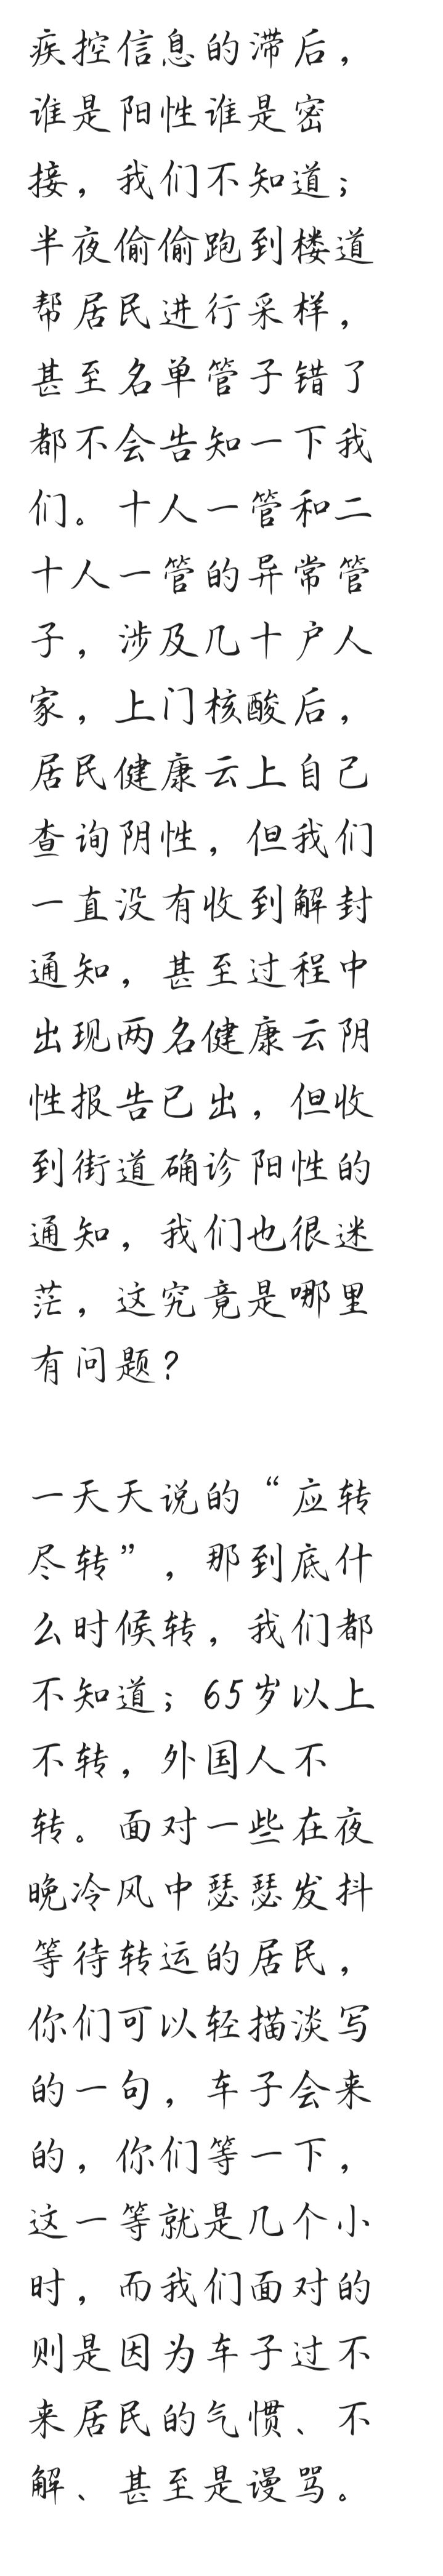 疾控信息的滞后，
谁是阳性谁是密
接，我们不知道；
半夜偷偷跑到楼道
帮居民进行采样，
甚至名单管子错了
都不会告知一下我
们。十人一管和二
十人一管的异常管
子，涉及几十户人
家，上门核酸后，
居民健康云上自己
查询阴性，但我们
一直没有收到解封
通知，甚至过程中
出现两名健康云阴
性报告已出，但收
到街道确诊阳性的
通知，我们也很迷
茫，这究竟是哪里
有问题？
一天天说的“应转
尽转”，那到底什
么时候转，我们都
不知道；65岁以上
不转，外国人不
转。面对一些在夜
晚冷风中瑟瑟发抖
等待转运的居民，
你们可以轻描淡写
的一句，车子会来
的，你们等一下，
这一等就是几个小
时，而我们面对的
则是因为车子过不
来居民的气愤、不
解、甚至是谩骂。